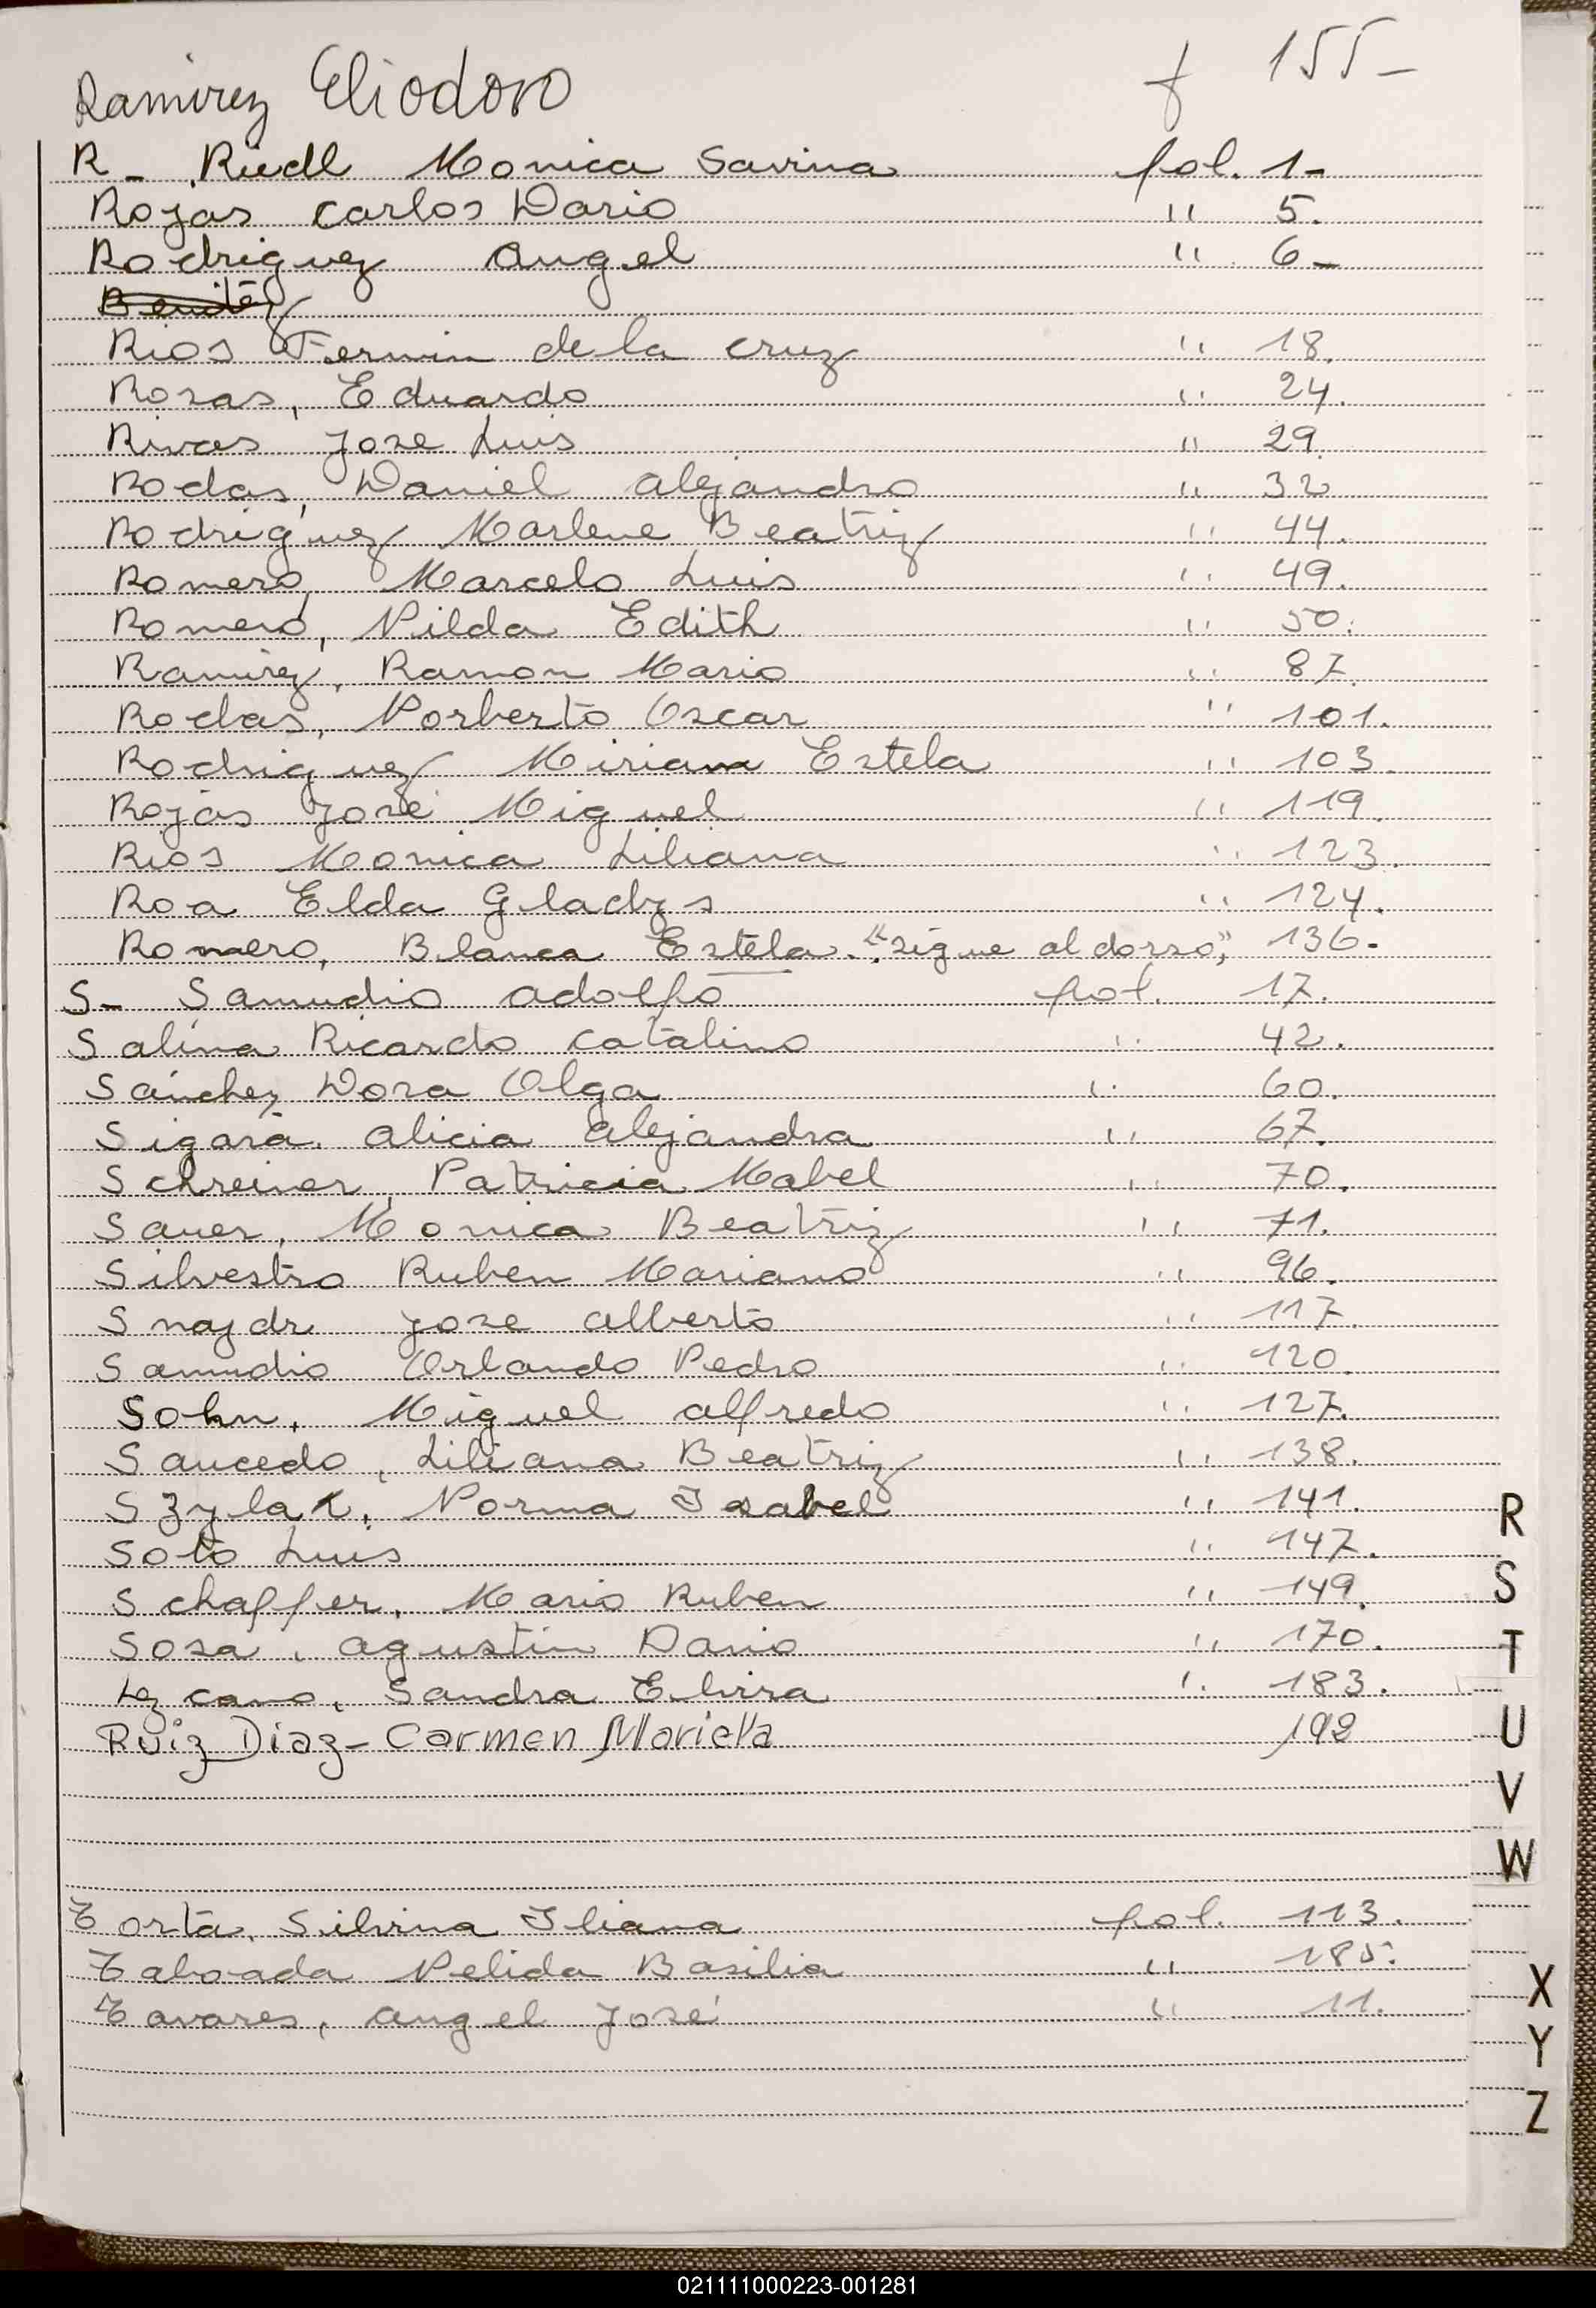 Ramirez Eliodoro f 155-
R- Riedl Monica Savina fol. 1-
Rojas Carlos Dario " 5.
Rodriguez Angel " 6-
Benitez
Rios Fermin de la Cruz " 18.
Rosas, Eduardo " 24.
Rivas Jose Luis " 29.
Rodas, Daniel Alejandro " 32
Rodriguez Marlene Beatriz " 44.
Romero, Marcelo Luis " 49.
Romero, Nilda Edith " 50.
Ramirez, Ramon Mario " 87.
Rodas, Norberto Oscar " 101.
Rodriguez Miriam Estela " 103.
Rojas José Miguel " 119.
Rios Monica Liliana " 123.
Roa Elda Gladys " 124.
Romero, Blanca Estela. "sigue al dorso," 136.
S- Samudio Adolfo fol. 17.
Salina Ricardo Catalino " 42.
Sánchez Dora Olga " 60.
Sigara. Alicia Alejandra " 67.
Schreiner, Patricia Mabel " 70.
Sauer, Monica Beatriz " 71.
Silvestro Ruben Mariano " 96.
Snajdr Jose Alberto " 117.
Samudio Orlando Pedro " 120.
Sohn, Miguel Alfredo " 127.
Saucedo, Liliana Beatriz " 138.
Szylak, Norma Isabel " 141.
Soto Luis " 147.
Schaffer, Mario Ruben " 149.
Sosa, Agustin Dario " 170.
Lezcano, Sandra Elvira " 183.
Ruiz Diaz- Carmen Mariella 192
Torta, Silvina Iliana fol. 113.
Taboada Nelida Basilia " 185.
Tavares, Angel José " 11.
R
S
T
U
V
W
X
Y
Z
021111000223-001281